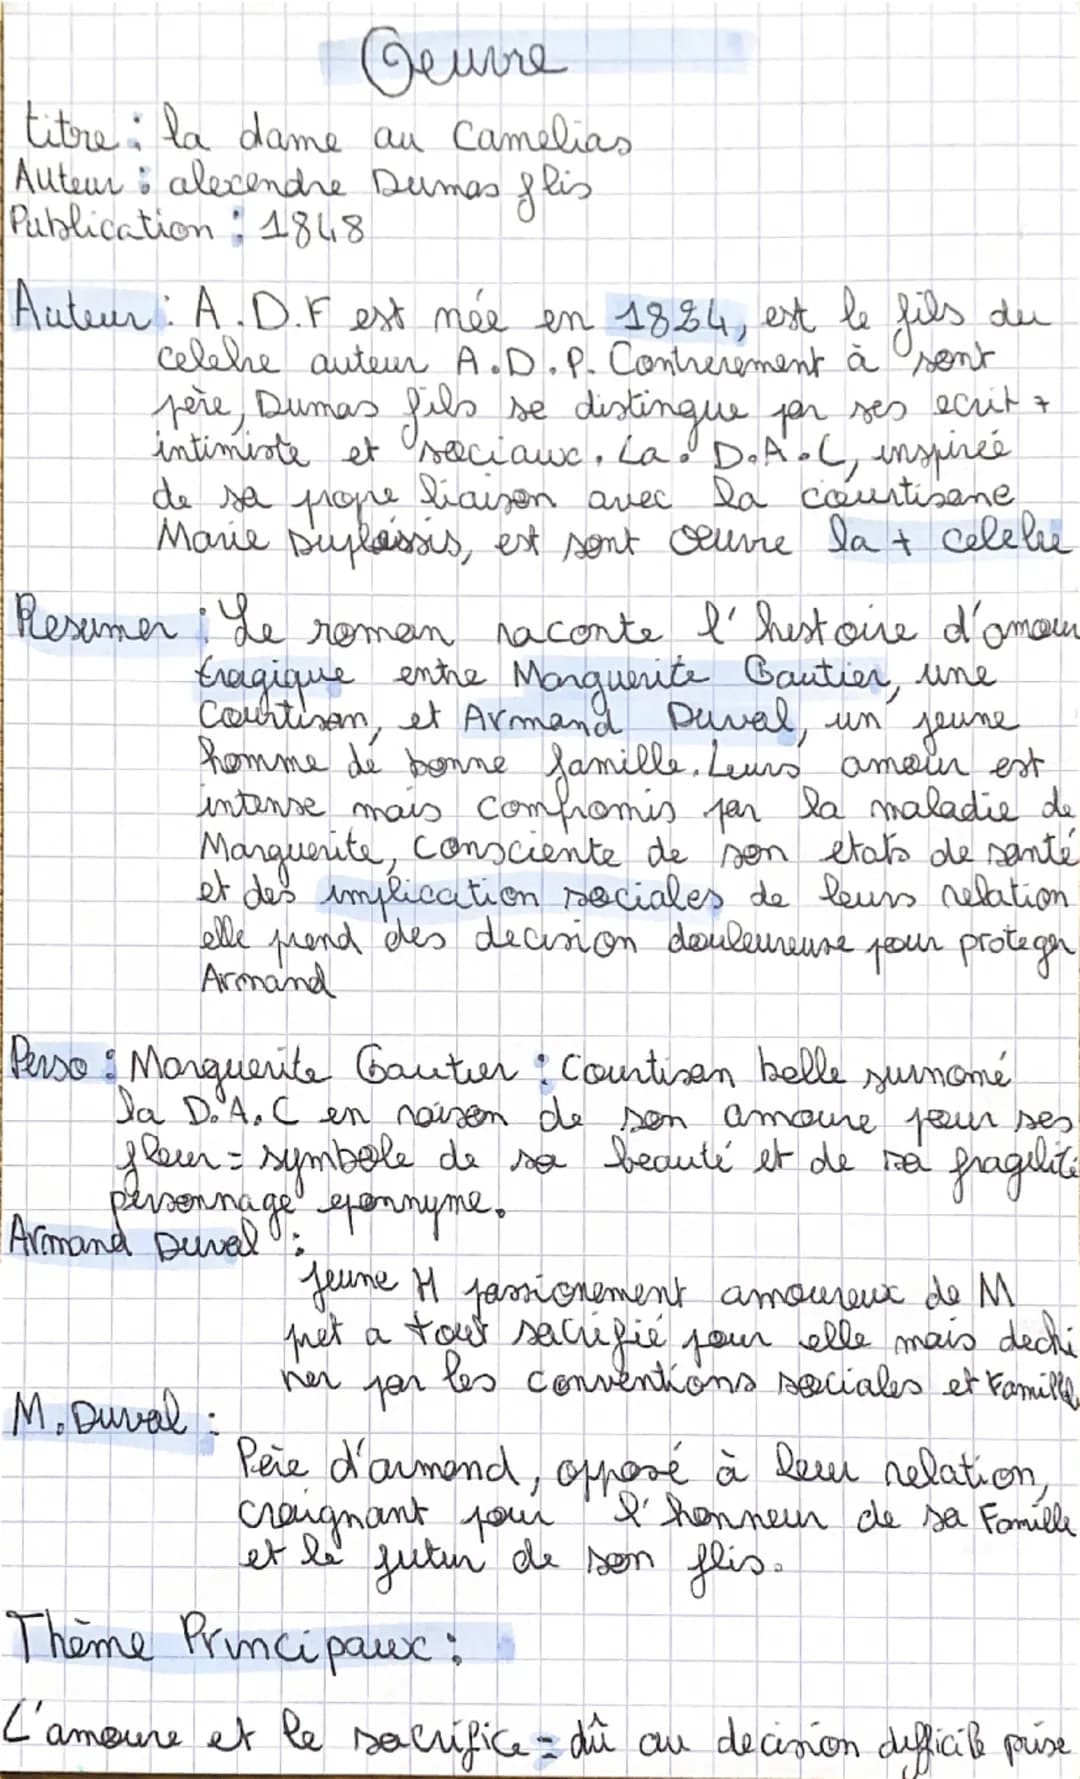 Oeuvre
titre : la dame au Camelias
Auteur : alexendre Dumas flis
Publication : 1848
Auteur : A.D.F est née en 1824, est le fils du
celebre auteur A.D.P. Contrerement à sont
père, Dumas fils se distingue par ses ecrit +
intimiste et sociaux. La D.A.C, inspirée
de sa propre liaison avec la courtisane
Marie Duplessis, est sont œuvre la + celebre
Resumer : Le roman raconte l'histoire d'amour
tragique entre Marguerite Gautier, une
Courtisan, et Armand Duval, un jeune
homme de bonne famille. Leurs amour est
intense mais compromis par la maladie de
Marguerite, consciente de son etats de santé
et des implication sociales de leurs relation
elle prend des decision douleureuse pour proteger
Armand
Perso : Marguerite Gautier : Courtisan belle surnomé
la D.A.C en raison de son amoure pour ses
fleur = symbole de sa beauté et de sa fragilité
personnage eponnyme.
Armand Duval :
jeune H passionement amoureux de M
pret a tout sacrifié pour elle mais dechi
rer par les conventions sociales et Famille
M. Duval :
Père d'armand, opposé à leur relation,
craignant pour l'honneur de sa Famille
et le futur de son flis.
Thème Principaux :
L'amoure et le sacrifice = dû au decision difficile prise